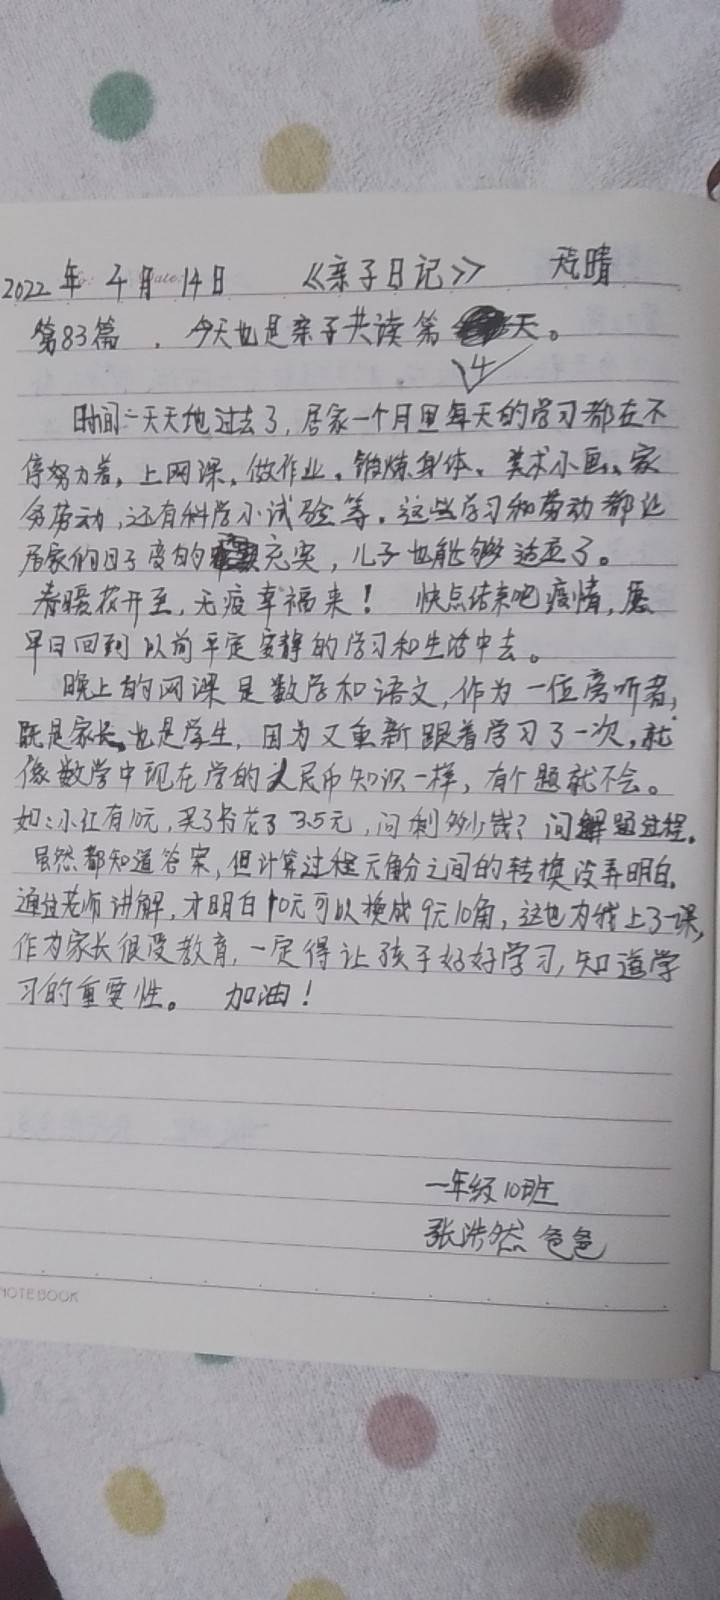 2022年4月14日 《亲子日记》 天晴
第83篇 . 今天也是亲子共读第14天。
时间一天天地过去了,居家一个月里每天的学习都在不
停努力着,上网课、做作业、锻炼身体、美术小画、家
务劳动,还有科学小试验等。这些学习和劳动都让
居家的日子变的充实,儿子也能够适应了。
春暖花开至,无疫幸福来! 快点结束吧疫情,愿
早日回到以前平定安静的学习和生活中去。
晚上的网课是数学和语文,作为一位旁听者,
既是家长,也是学生,因为又重新跟着学习了一次,就
像数学中现在学的人民币知识一样,有个题就不会。
如:小红有10元,买了书花了3.5元,问剩多少钱?问解题过程。
虽然都知道答案,但计算过程元角分之间的转换没弄明白。
通过老师讲解,才明白10元可以换成9元10角,这也为我上了一课,
作为家长很受教育,一定得让孩子好好学习,知道学
习的重要性。 加油!
一年级10班
张浩然爸爸
NOTEBOOK